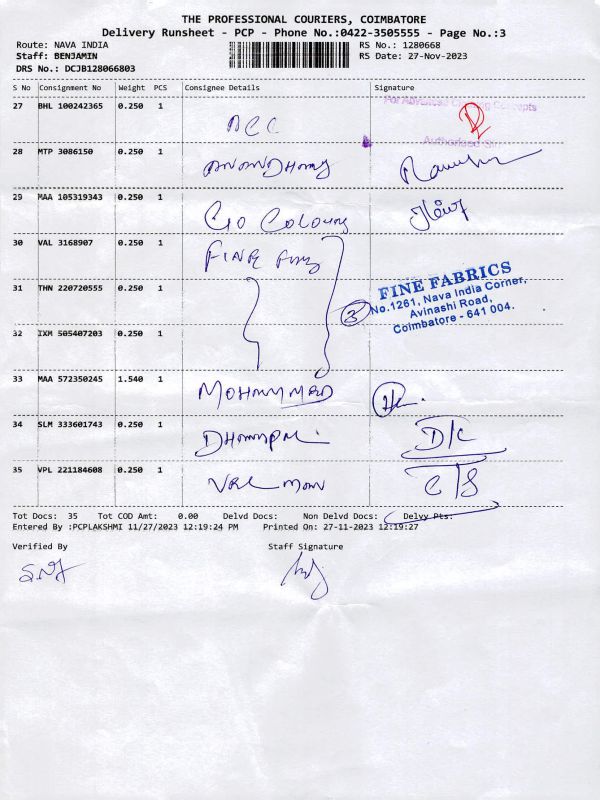 THE PROFESSIONAL COURIERS, COIMBATORE
Delivery Runsheet - PCP - Phone No.:0422-3505555 - Page No.:3
Route: NAVA INDIA RS No.: 1280668
Staff: BENJAMIN RS Date: 27-Nov-2023
DRS No.: DCJB128066803
S No Consignment No Weight PCS Consignee Details Signature
27 BHL 100242365 0.250 1
For Advanced Concepts
ACC
Authorised
28 MTP 3086150 0.250 1
29 MAA 105319343 0.250 1
Colours
30 VAL 3168907 0.250 1
FINE
31 THN 220720555 0.250 1
FINE FABRICS
No.1261, Nava India Corner,
Avinashi Road,
Coimbatore - 641 004.
3
32 IXM 505407203 0.250 1
33 MAA 572350245 1.540 1
MOHAMMED
34 SLM 333601743 0.250 1
D/C
35 VPL 221184608 0.250 1
C/S
Tot Docs: 35 Tot COD Amt: 0.00 Delvd Docs: Non Delvd Docs: Delvy Pts:
Entered By :PCPLAKSHMI 11/27/2023 12:19:24 PM Printed On: 27-11-2023 12:19:27
Verified By Staff Signature